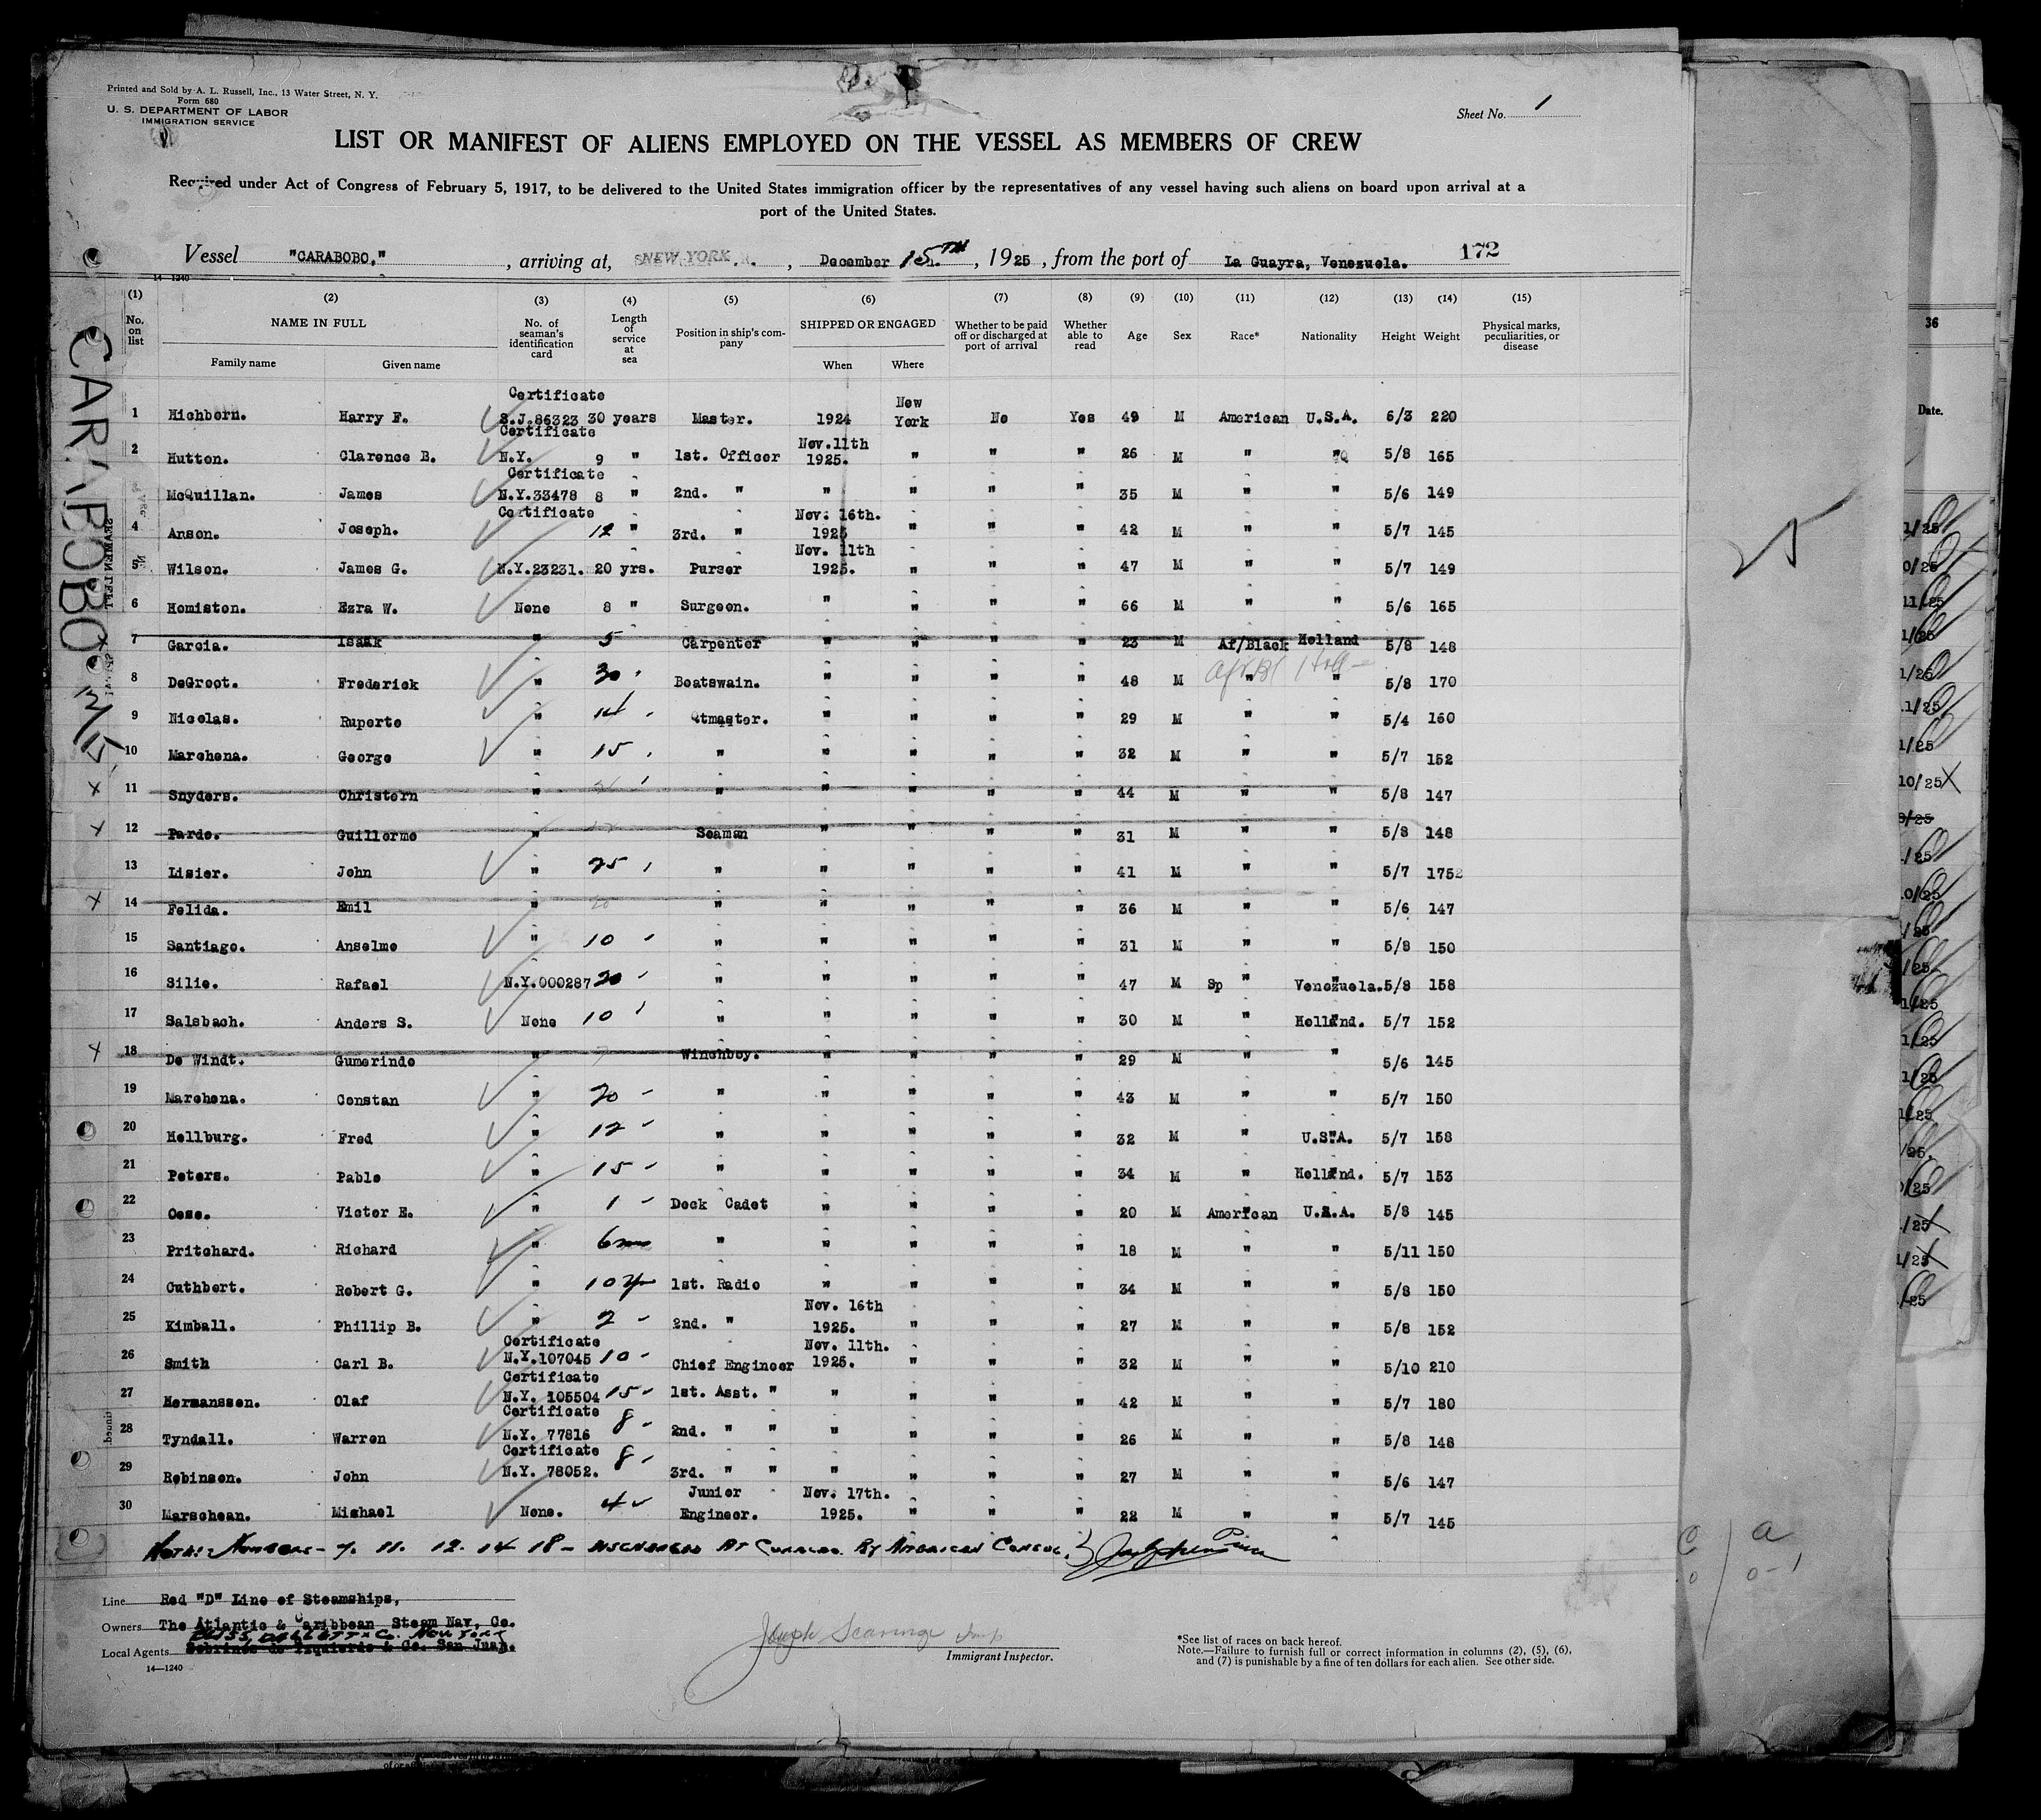 Printed and Sold by A. L. Russell, Inc., 13 Water Street, N. Y.
Form 680
U. S. DEPARTMENT OF LABOR
IMMIGRATION SERVICE
Sheet No. 1
LIST OR MANIFEST OF ALIENS EMPLOYED ON THE VESSEL AS MEMBERS OF CREW
Required under Act of Congress of February 5, 1917, to be delivered to the United States immigration officer by the representatives of any vessel having such aliens on board upon arrival at a
port of the United States.
Vessel "CARABOBO," , arriving at, NEW YORK , December 15TH , 1925 , from the port of La Guayra, Venezuela. 172
14—1240
(1) (2) (3) (4) (5) (6) (7) (8) (9) (10) (11) (12) (13) (14) (15)
No. on list NAME IN FULL No. of seaman's identification card Length of service at sea Position in ship's company SHIPPED OR ENGAGED Whether to be paid off or discharged at port of arrival Whether able to read Age Sex Race* Nationality Height Weight Physical marks, peculiarities, or disease
Family name Given name When Where
CARABOBO 12/15
1 Hichborn. Harry F. Certificate S.J.86323 30 years Master. 1924 New York No Yes 49 M American U.S.A. 6/3 220
2 Hutton. Clarence B. Certificate N.Y. 9 " 1st. Officer Nov.11th 1925. " " " 26 M " " 5/8 165
McQuillan. James Certificate N.Y.33478 8 " 2nd. " " " " " 35 M " " 5/6 149
4 Anson. Joseph. Certificate 12 " 3rd. " Nov. 16th. 1925 " " " 42 M " " 5/7 145
5 Wilson. James G. N.Y.23231. 20 yrs. Purser Nov. 11th 1925. " " " 47 M " " 5/7 149
6 Homiston. Ezra W. None 8 " Surgeon. " " " " 66 M " " 5/6 165
7 Garcia. Isaak " 5 Carpenter " " " " 23 M Af/Black Holland 5/8 148
8 DeGroot. Frederick " 30 Boatswain. " " " " 48 M Afr Bl " Holl " 5/8 170
9 Nicolas. Ruperto " 14 Qtmaster. " " " " 29 M " " 5/4 160
10 Marchena. George " 15 " " " " " 32 M " " 5/7 152
X 11 Snyders. Christern " " " " " " 44 M " " 5/8 147
X 12 Pardo. Guillermo " Seaman " " " " 31 M " " 5/8 148
13 Lisier. John " 25 " " " " " 41 M " " 5/7 1752
X 14 Felida. Emil " 20 " " " " " 36 M " " 5/6 147
15 Santiago. Anselmo " 10 " " " " " 31 M " " 5/8 150
16 Silie. Rafael N.Y.000287 20 " " " " " 47 M Sp " Venezuela. 5/8 158
17 Salsbach. Anders S. None 10 " " " " " 30 M " Holland. 5/7 152
X 18 De Windt. Gumerindo " 7 Winchboy. " " " " 29 M " " 5/6 145
19 Marchena. Constan " 20 " " " " " 43 M " " 5/7 150
20 Hellburg. Fred " 12 " " " " " 32 M " U.S.A. 5/7 158
21 Peters. Pablo " 15 " " " " " 34 M " Holland. 5/7 153
22 Oese. Victor E. " 1 Deck Cadet " " " " 20 M American U.S.A. 5/8 145
23 Pritchard. Richard " 6 mo " " " " " 18 M " " 5/11 150
24 Cuthbert. Robert G. " 10 yr 1st. Radio " " " " 34 M " " 5/8 150
25 Kimball. Phillip B. " 2 2nd. " Nov. 16th 1925. " " " 27 M " " 5/8 152
26 Smith Carl B. Certificate N.Y.107045 10 Chief Engineer Nov. 11th. 1925. " " " 32 M " " 5/10 210
27 Hermanssen. Olaf Certificate N.Y. 105504 15 1st. Asst. " " " " " 42 M " " 5/7 180
28 Tyndall. Warren Certificate N.Y. 77816 8 2nd. " " " " " " 26 M " " 5/8 148
29 Robinson. John Certificate N.Y. 78052. 8 3rd. " " " " " " 27 M " " 5/6 147
30 Marschean. Michael None. 4 Junior Engineer. Nov. 17th. 1925. " " " 22 M " " 5/7 145
NOTE: NUMBERS - 7. 11. 12. 14 18 - DISCHARGED AT CURACAO BY AMERICAN CONSUL.
Line Red "D" Line of Steamships,
Owners The Atlantic & Caribbean Steam Nav, Co.
BLISS, DALLETT & Co. NEW YORK
Local Agents Sobrinos de Izquierdo & Co. San Juan.
14—1240
Joseph Scaringe Insp
Immigrant Inspector.
*See list of races on back hereof.
Note.—Failure to furnish full or correct information in columns (2), (5), (6),
and (7) is punishable by a fine of ten dollars for each alien. See other side.
36
Date.